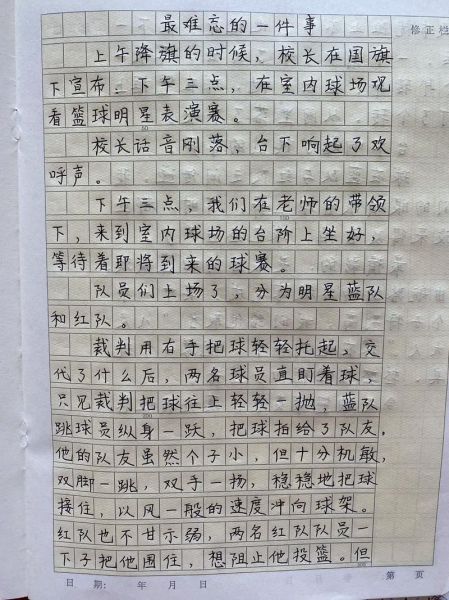 最难忘的一件事
修正档
上午降旗的时候，校长在国旗
下宣布：下午三点，在室内球场观
看篮球明星表演赛。
校长话音刚落，台下响起了欢
呼声。
下午三点，我们在老师的带领
下，来到室内球场的台阶上坐好，
等待着即将到来的球赛。
队员们上场了，分为明星蓝队
和红队。
裁判用右手把球轻轻托起，交
代了什么后，两名球员直盯着球，
只见裁判把球往上轻轻一抛，蓝队
跳球员纵身一跃，把球拍给了队友。
他的队友虽然个子小，但十分机敏，
双脚一跳，双手一扬，稳稳地把球
接住，以风一般的速度冲向球架。
红队也不甘示弱，两名红队队员一
下子把他围住，想阻止他投篮。但
日 期： 年 月 日 第 页